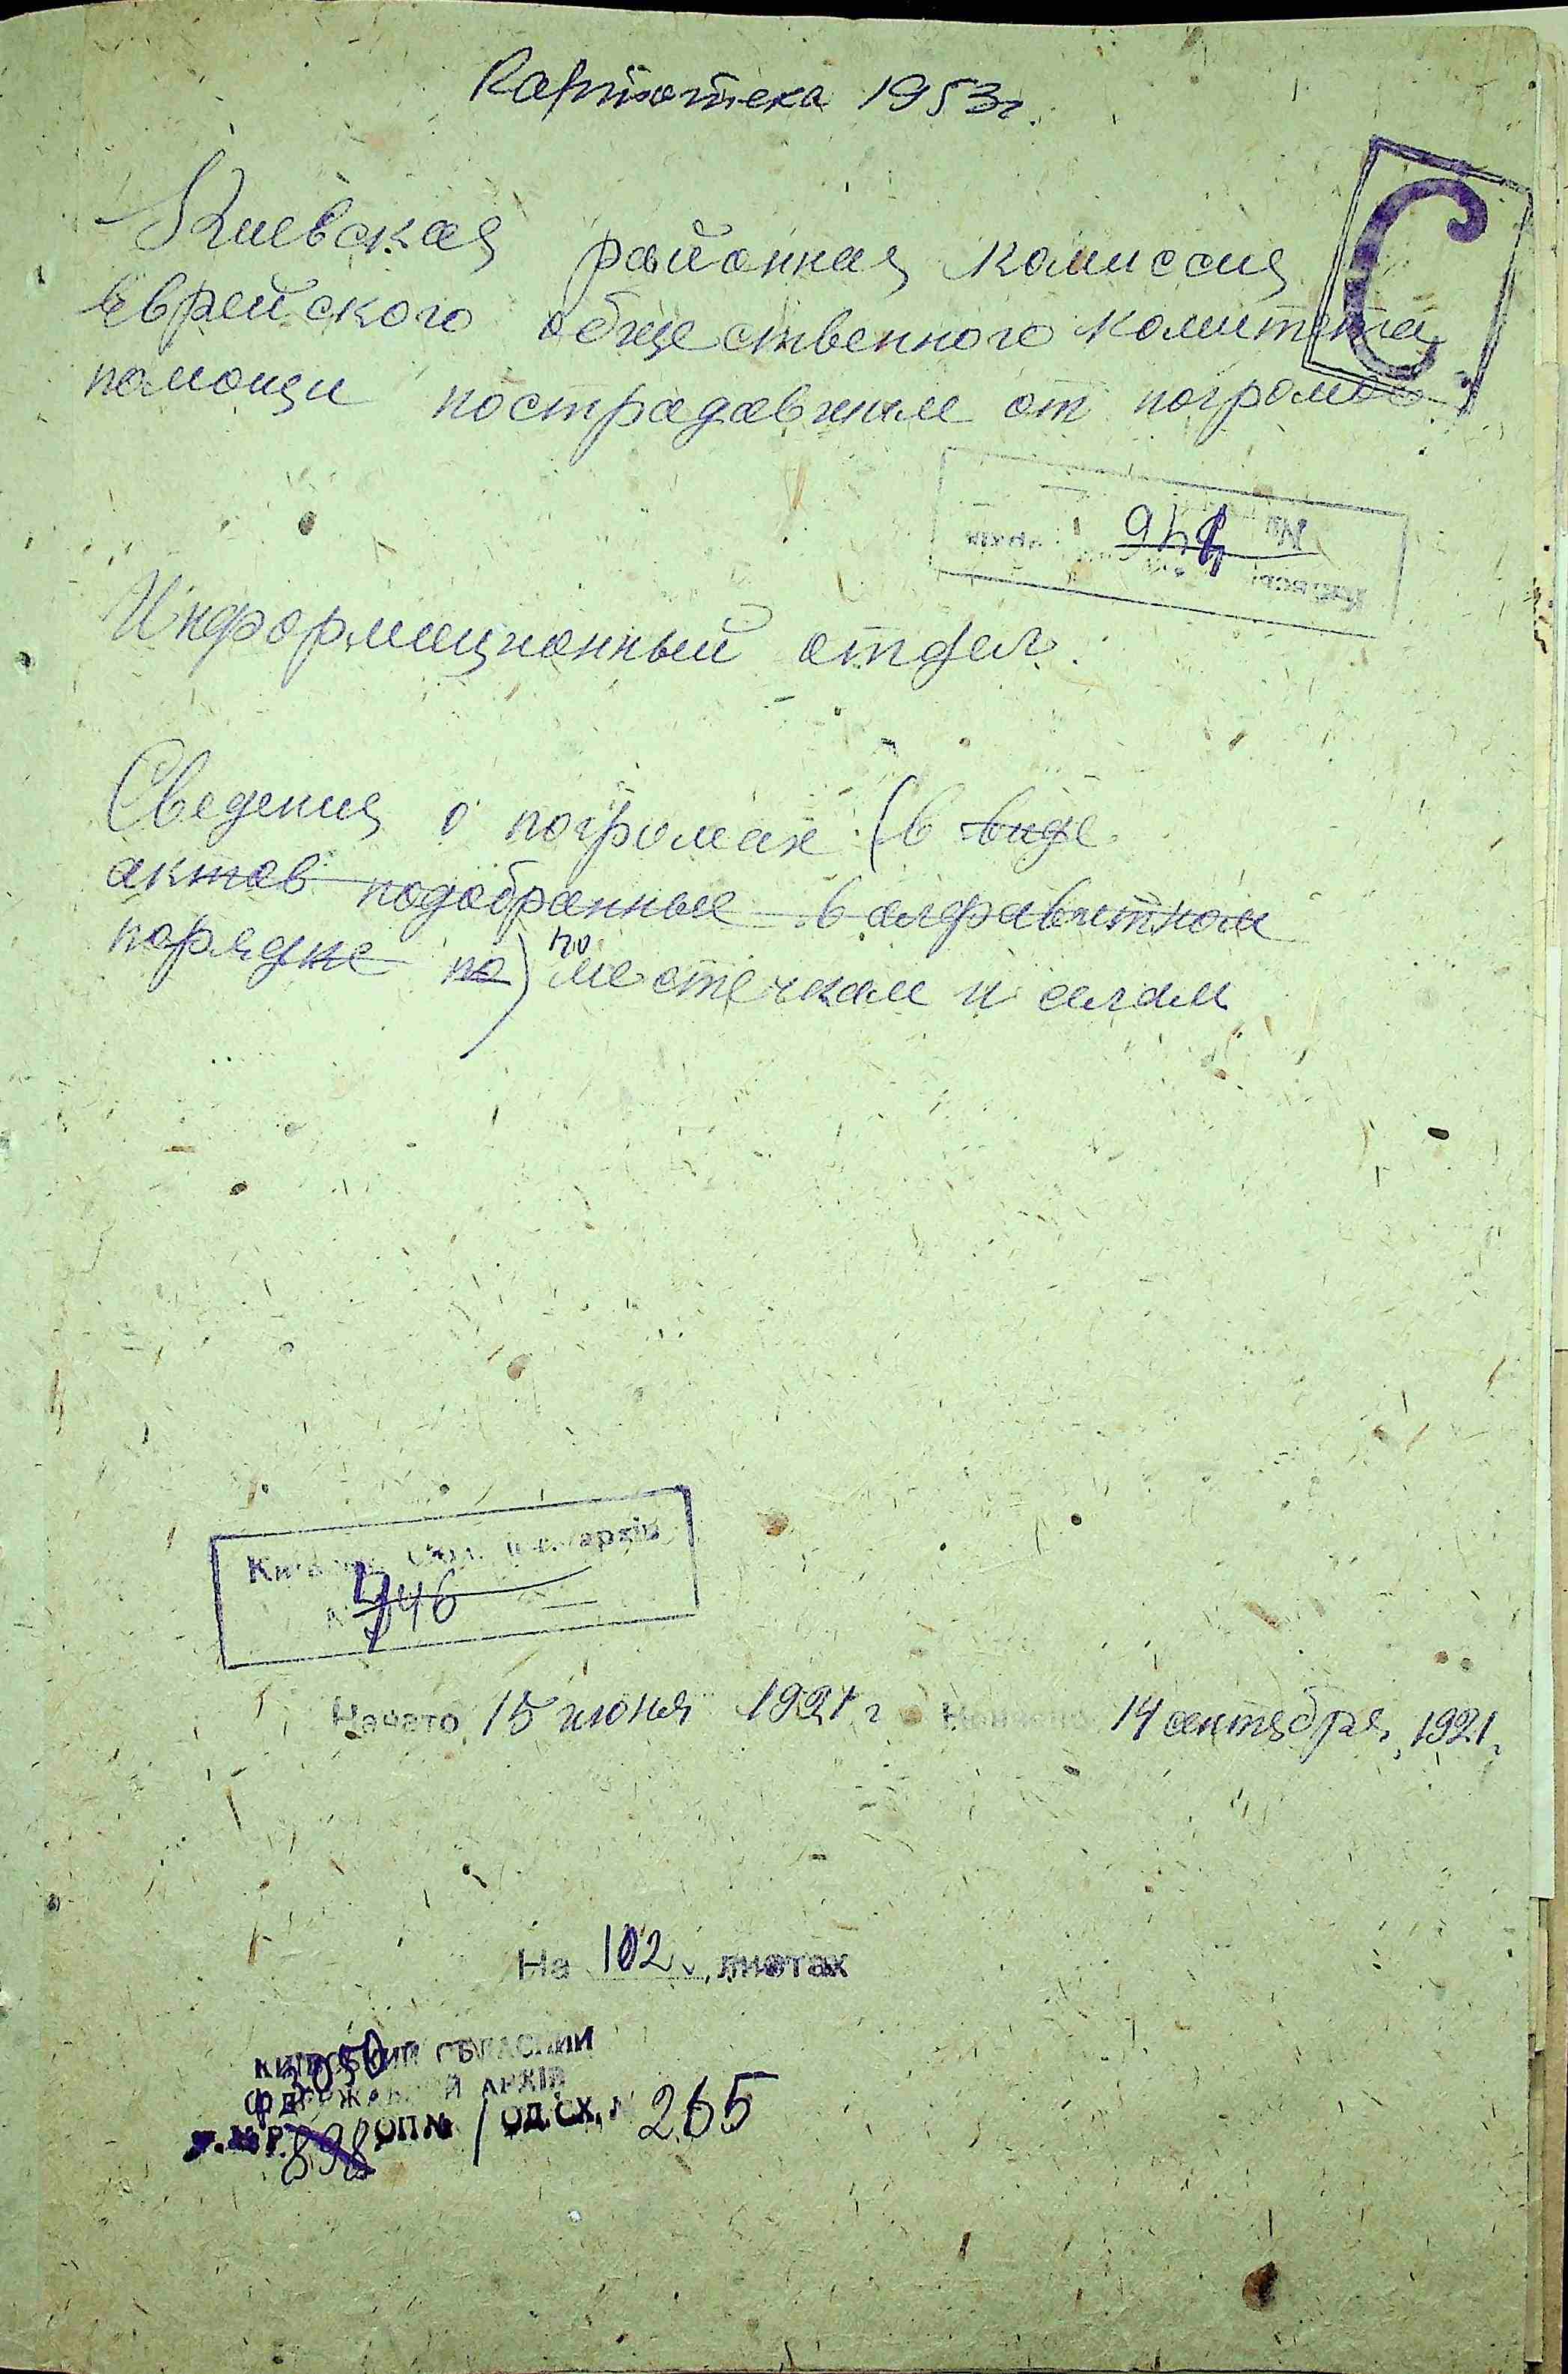 Картотека 1953г.
С
Киевская районная комиссия
Еврейского общественного комитета
помощи пострадавшим от погромов
946
№
Информационный отдел.
Сведения о погромах (в виде
актов подобранные в алфавитном
порядке по) по местечкам и селам
архів
946
Начато 15 июня 1921 г 14 сентября 1921г.
На 102 листах
КИЇВСЬКИЙ ОБЛАСНИЙ
ДЕРЖАВНИЙ АРХІВ
Ф. № Р. 3050 898 ОП № 1 ОД. СХ. № 265